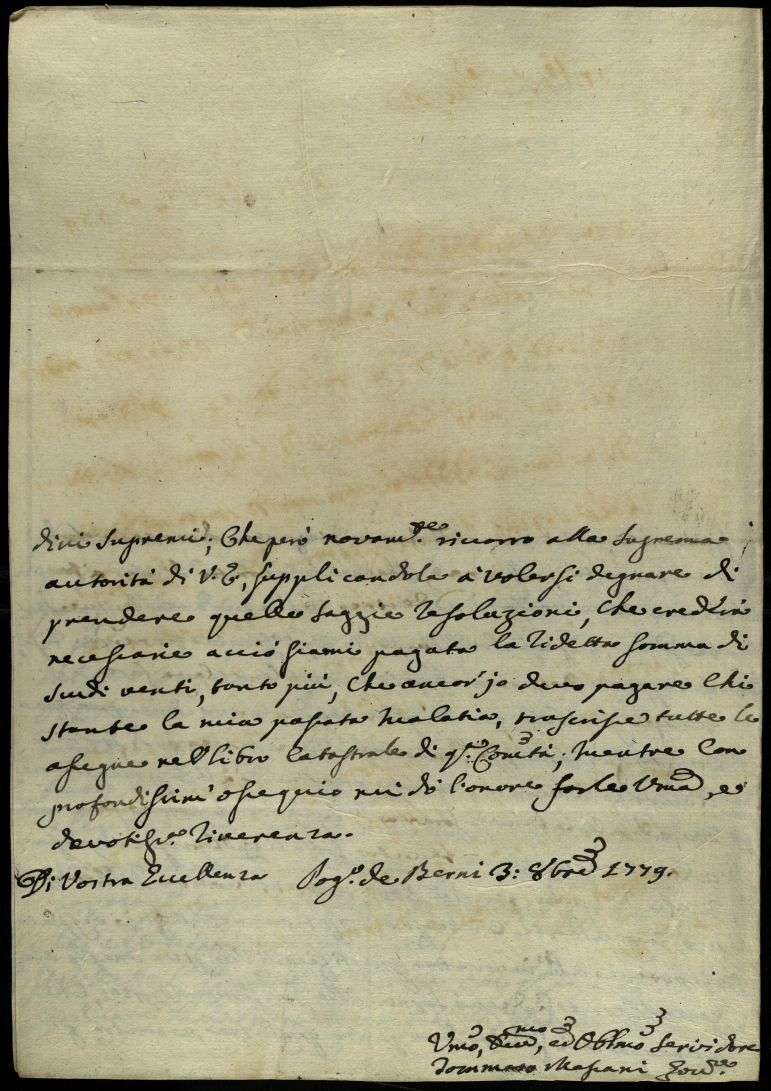 dini Supremi; Che però novam.te ricorro alla Suprema
autorità di V. E., supplicandola à volersi degnare di
prendere quelle saggie resoluzioni, che crederà
necessarie acciò siami pagata la ridetta somma di
scudi venti, tanto più, che ancor'jo devo pagare chi
stante la mia passata malatia, trascrisse tutte le
assegne nell'libro Catastrale di q.sta Com.tà; mentre con
profondissimi ossequio mi dò l'onore farle Uma, e
devotiss.a riverenza.
Di Vostra Eccellenza Pog.o de Berni 3: 8bre 1779.
Umo, Dmo, ed Obblmo Servidore
Tommaso Massani Gov.re